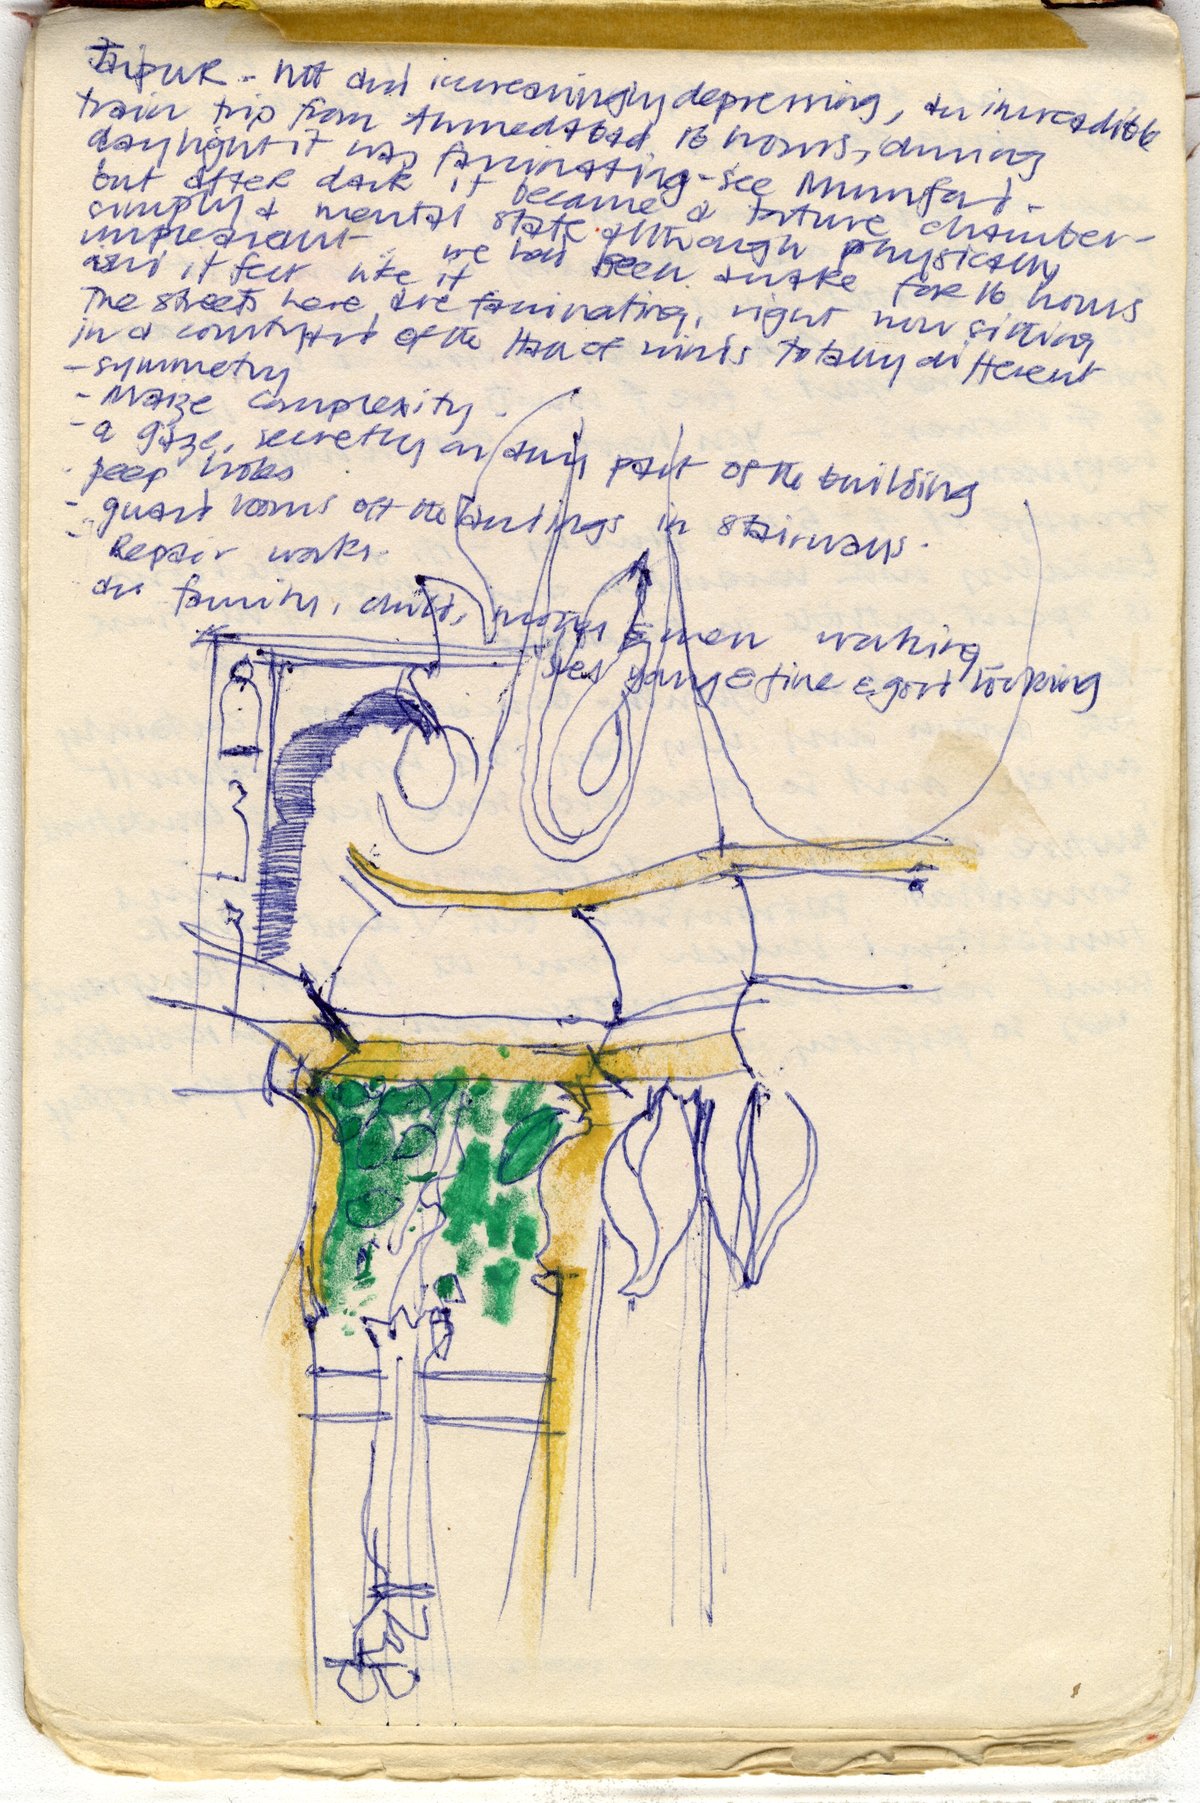 Jaipur - hot and increasingly depressing, an incredible
train trip from Ahmedabad 16 hours, during
daylight it was fascinating - see Mumford -
but after dark it became a torture chamber -
simply a mental state although physically
unpleasant. we had been awake for 16 hours
and it felt like it
The streets here are fascinating, right now sitting
in a courtyard of the Hall of winds totally different
- symmetry
- Maize complexity -
- a gaze, secretly on any part of the building
peep holes
- guard rooms off the landings in stairways.
- Repair works.
family, child, & men working
young & fine & good looking